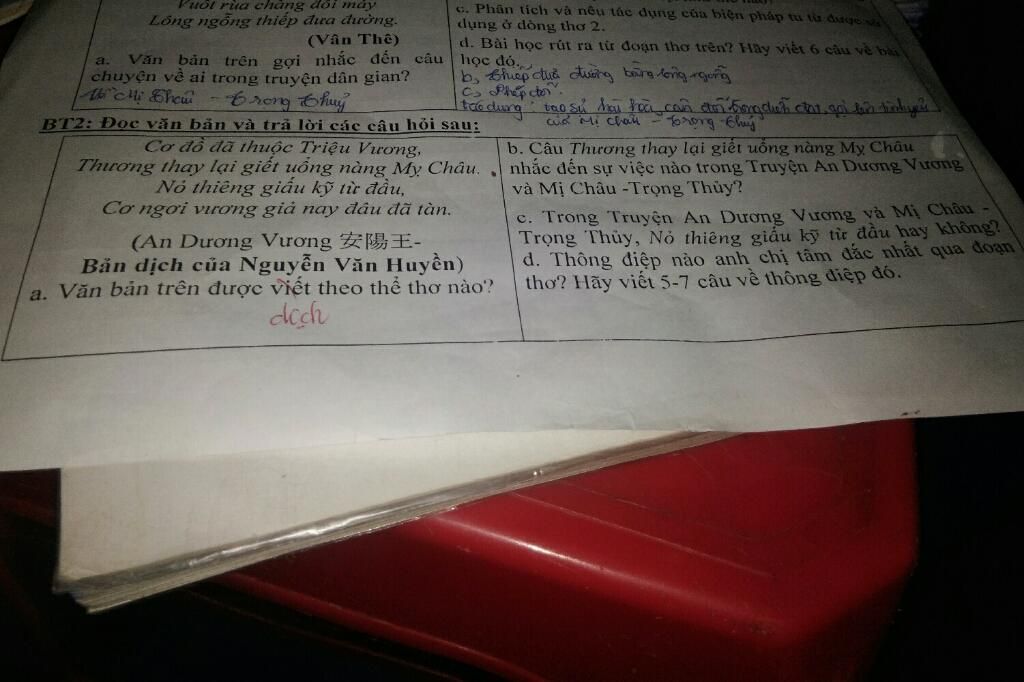 Vuốt rùa chẳng đổi máy
Lông ngỗng thiếp đưa đường.
(Vân Thê)
a. Văn bản trên gợi nhắc đến câu
chuyện về ai trong truyện dân gian?
Mị Châu - Trọng Thuỷ
c. Phân tích và nêu tác dụng của biện pháp tu từ được sử
dụng ở dòng thơ 2.
d. Bài học rút ra từ đoạn thơ trên? Hãy viết 6 câu về bài
học đó.
b, thiếp đưa đường bằng lông ngỗng
c, Phép đối.
tác dụng: tạo sự hài hòa, cân đối trong diễn đạt, gợi
của Mị Châu - Trọng Thuỷ
BT2: Đọc văn bản và trả lời các câu hỏi sau:
Cơ đồ đã thuộc Triệu Vương,
Thương thay lại giết uổng nàng Mỵ Châu.
Nỏ thiêng giấu kỹ từ đầu,
Cơ ngơi vương giả nay đâu đã tàn.
(An Dương Vương 安陽王-
Bản dịch của Nguyễn Văn Huyền)
a. Văn bản trên được viết theo thể thơ nào?
dịch
b. Câu Thương thay lại giết uổng nàng Mỵ Châu
nhắc đến sự việc nào trong Truyện An Dương Vương
và Mị Châu -Trọng Thủy?
c. Trong Truyện An Dương Vương và Mị Châu -
Trọng Thủy, Nỏ thiêng giấu kỹ từ đầu hay không?
d. Thông điệp nào anh chị tâm đắc nhất qua đoạn
thơ? Hãy viết 5-7 câu về thông điệp đó.